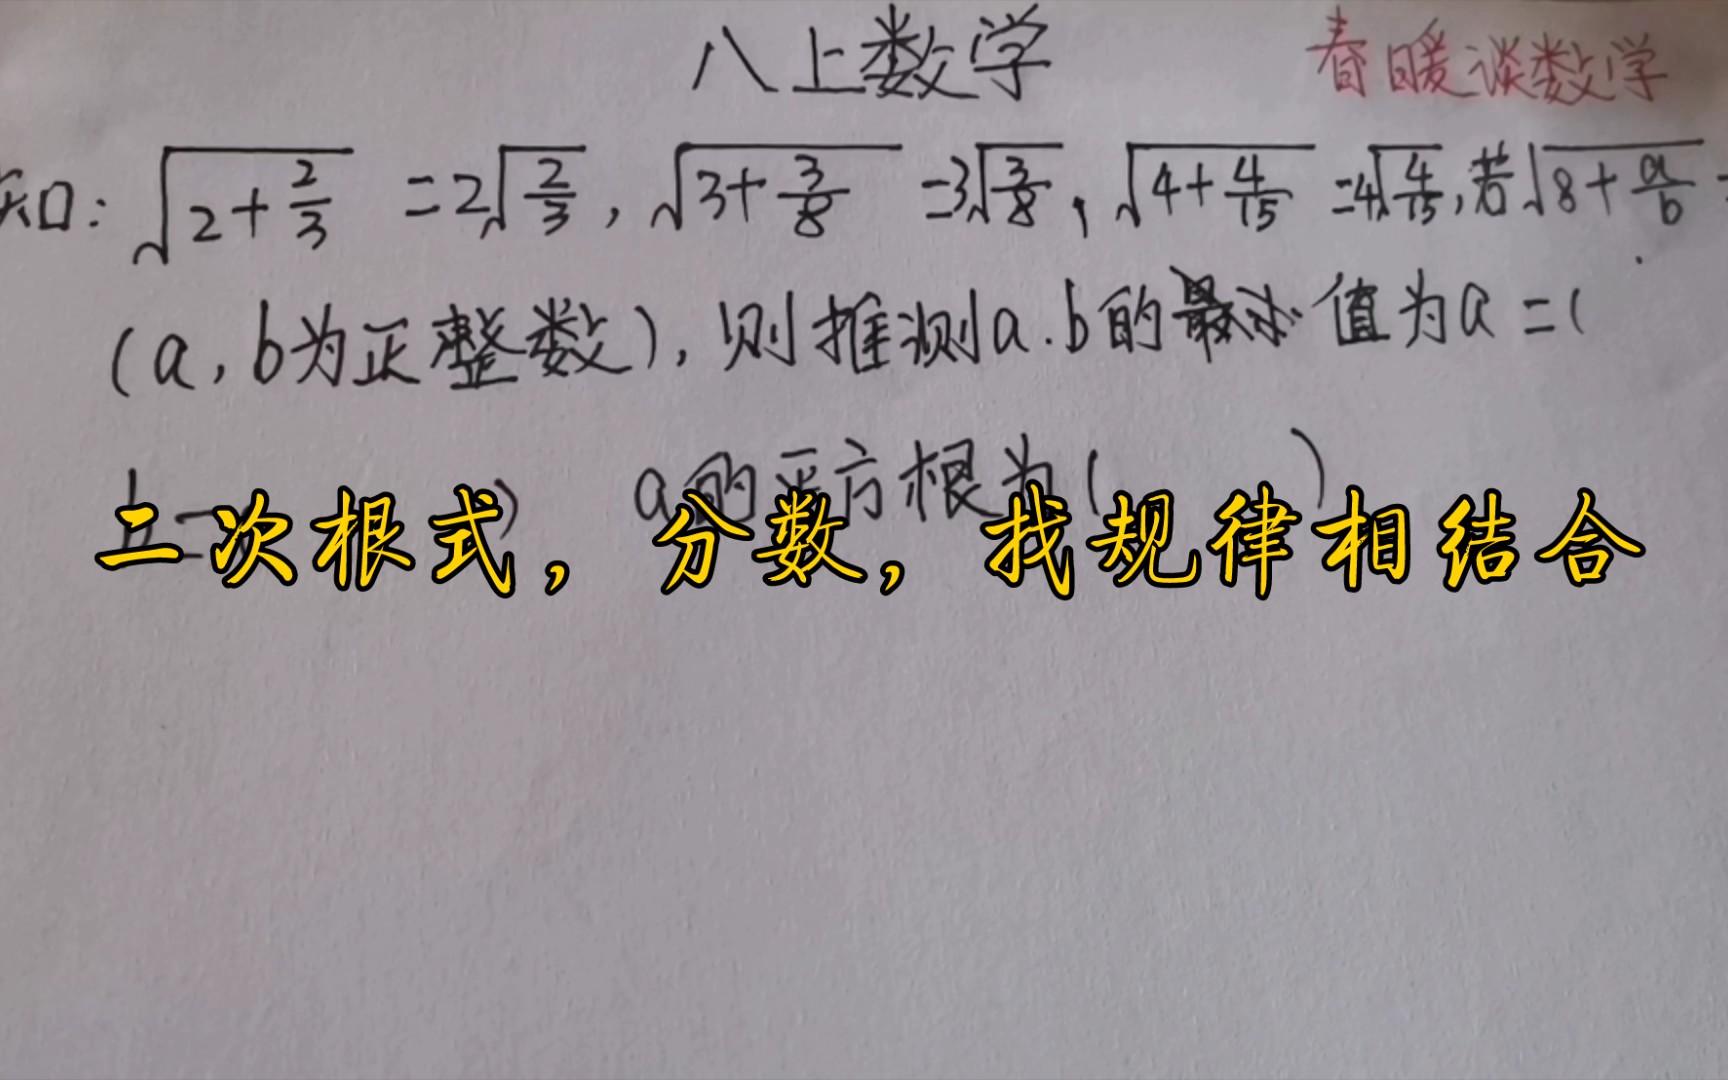 八上数学
春暖谈数学
知: √(2+2/3) =2√(2/3), √(3+3/8) =3√(3/8), √(4+4/15) =4√(4/15), 若√(8+a/b)
(a,b为正整数),则推测a.b的最小值为a=(
b= ) a的平方根为( )
二次根式，分数，找规律相结合